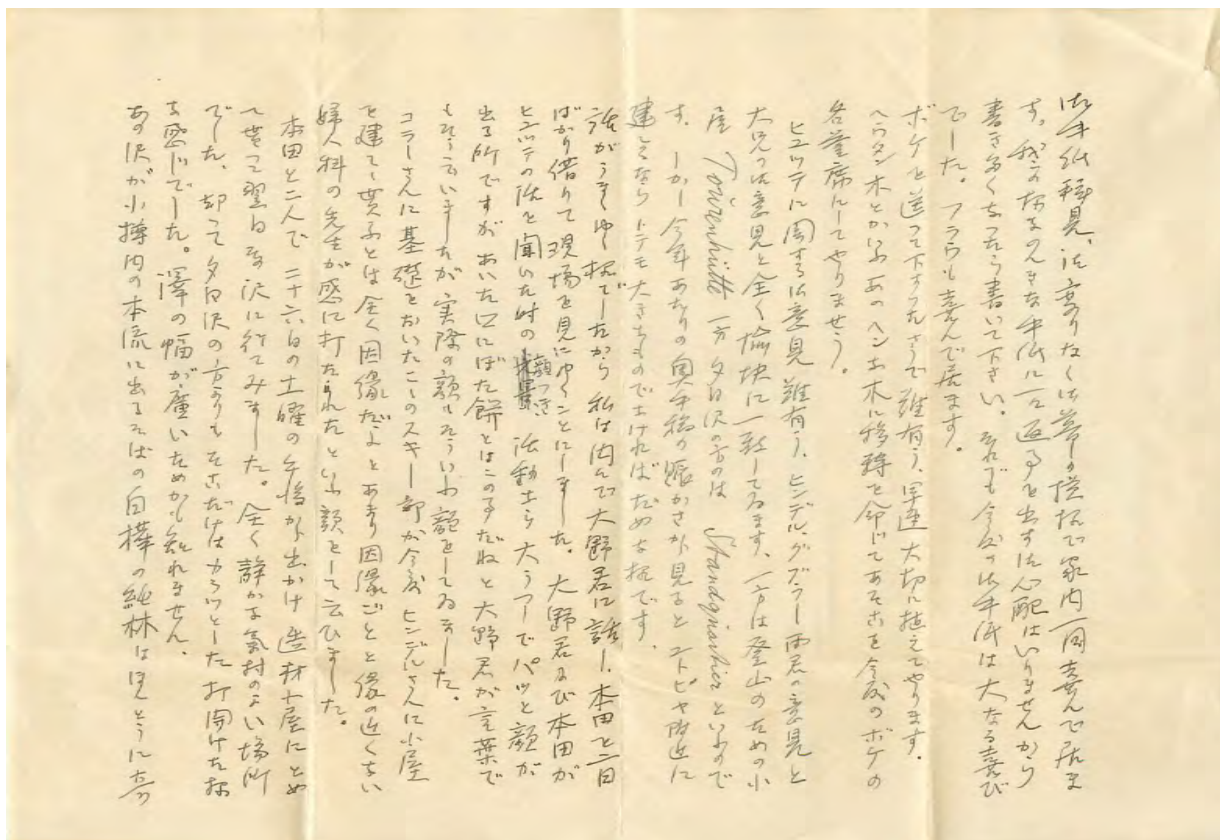 御手紙拝見、御変りなく御暮の様抔で家内一同喜んで居ま
す。私の様なのんきな手紙に一々返事を出す御心配はいりませんから
書きたくなったら書いて下さい。それでも今度の御手紙は大なる喜び
でした。フラウも喜んで居ます。
ボケを送って下すったさうで難有う、早速大切に植えてやります。
ヘウタン木とかいふあの ヘンな木に移轉を命じてあそこを今度のボケの
名誉席にしてやりませう。
ヒュッテに関する御意見難有う、ヒンデル、グブラー両君の意見と
大兄の御意見と全く愉快に一致してゐます、一方は登山のための小
屋 Tourenhütte 一方夕日沢の方のは Standquartier といふので
す。しかし今年あたりの奥手稲の賑かさから見ると ユートピヤ附近に
建てるなら トテモ大きなものでなければだめな様です。
話がうますぎる様でしたから私は内々で大野君に話し、本田と二日
ばかり借りて現場を見にゆくことにしました。大野君及び本田が
ヒュッテの話を聞いた時の 顔つき 活動なら大うつしでパッと顔が
出る所ですが あいた口にぼた餅とはこの事だねと大野君が言葉で
もそういいましたが実際の顔もそういふ顔をしてゐました。
コラーさんに基礎をおいたここのスキー部が今度 ヒンデルさんに小屋
を建てて貰ふとは全く因縁だよと あまり因縁ごとと縁の近くない
婦人科の先生が感に打たれたといふ顔をして云ひました。
本田と二人で 二十六日の土曜の午後から出かけ 造材小屋にとめ
て貰って翌日その沢に行てみました。全く静かな気持のよい場所
でした、却って夕日沢の方よりも そこだけはカラッとした打開けた様
な感じでした。澤の幅が廣いためかも知れません。
あの沢が小樽内の本流に出るそばの白樺の純林はほんとうに奇